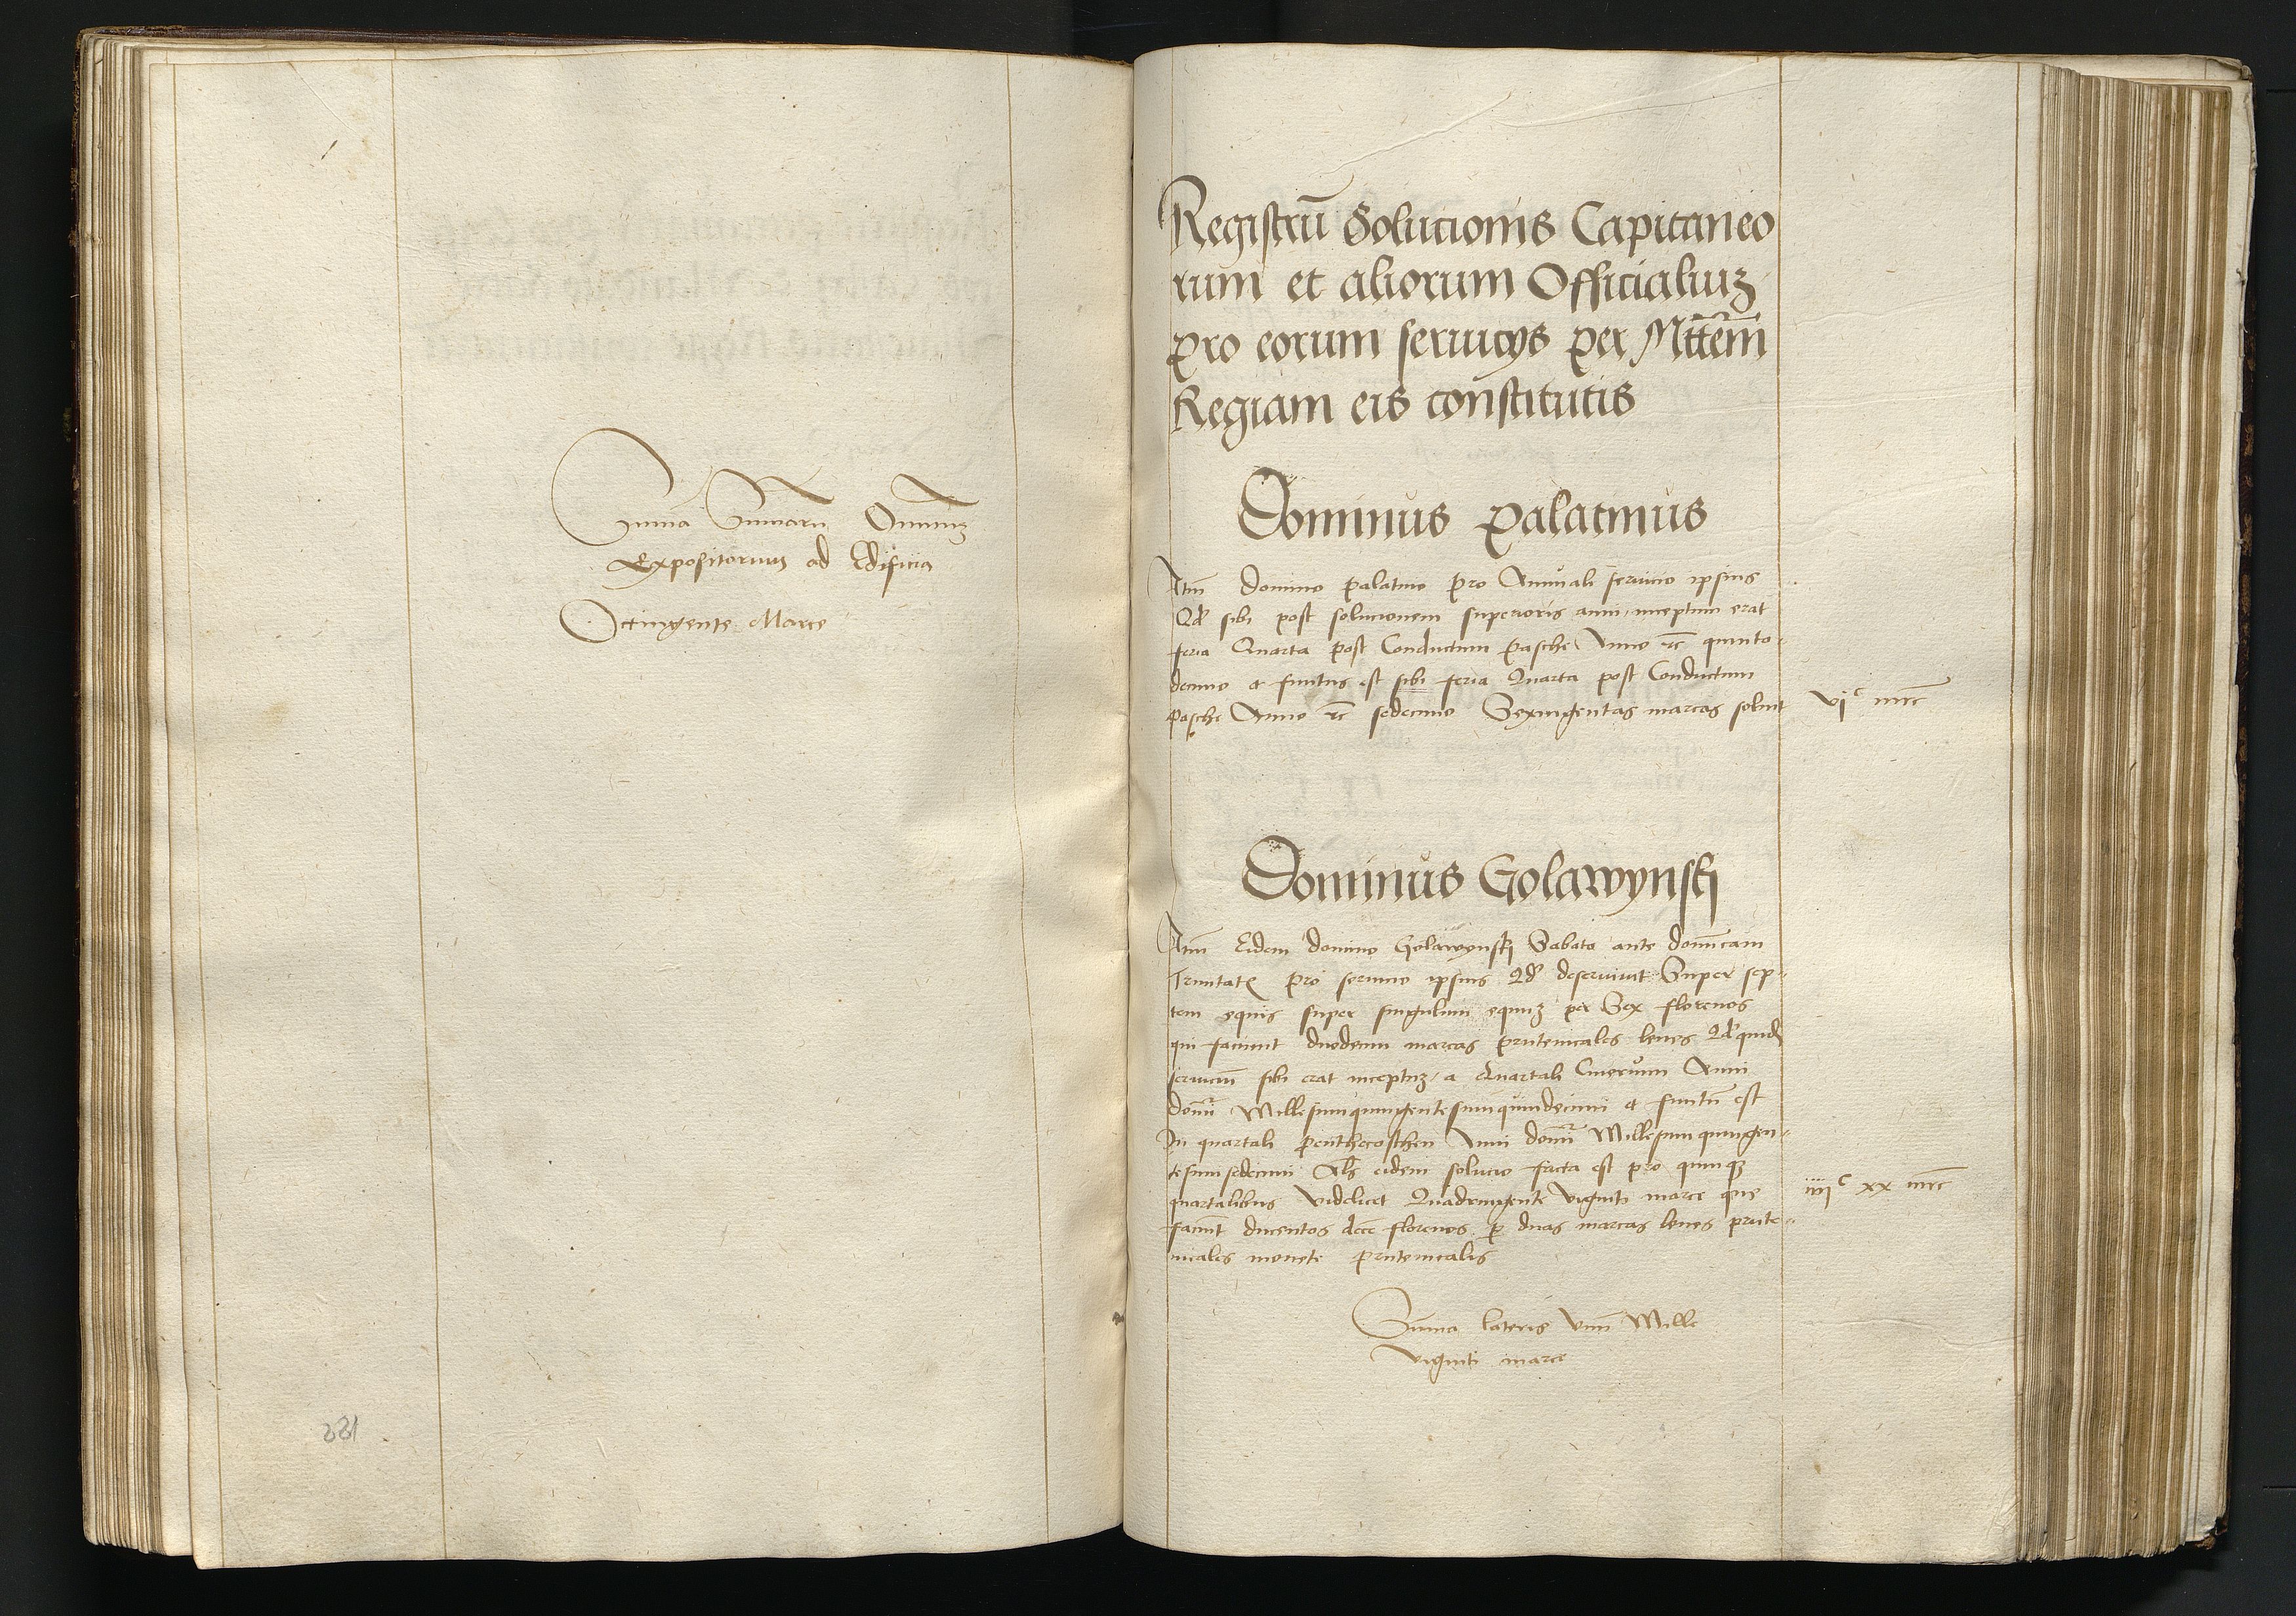 Suma Sumaru Omniuz
Expositoruz ad Edificia
Octingente Marce
221
Registrũ Solucionis Capitaneo
rum et aliorum Officialiuz
pro eorum seruicijs per Mttem̃
Regiam eis constitutis
Dominus Palatinus
Itm̃ domino palatino pro Annuali seruicio ipsius
Qd̃ sibi post solucionem superioris anni inceptum erat
feria Quarta post Conductum Pasche Anno rc̃ quinto-
decimo et finitus est sibi feria Quarta post Conductum
pasche Anno rc̃ sedecimo Sexingentas marcas soluit
vjᶜ mrc̃
Dominus Golawynskj
Itm̃ Eidem domino Golawynskj Sabato ante domĩcam
Trinitatꝭ pro seruicio ipsius Qd̃ deseruiuit Super sep-
tem equis super singulum equuz per Sex florenos
qui faciunt duodecim marcas prutenicales leues Qd̃quid̃
seruiciũ sibi erat inceptuz a Quartali Cinerum Anni
domĩ Millesimiquingentesimiquindecimi et finitũ est
In quartali penthecosthen Anni domĩ Millesimiquingen-
tesimisedecimi eidem solucio facta est pro quinqʒ
quartalibus videlicet Quadringente viginti marce que
faciũt ducentos dece florenos p̱ duas marcas leues prute-
nicales monete prutenicalis
iiijᶜ xx mrc̃
Sũma lateris Vnũ Mille
viginti marce